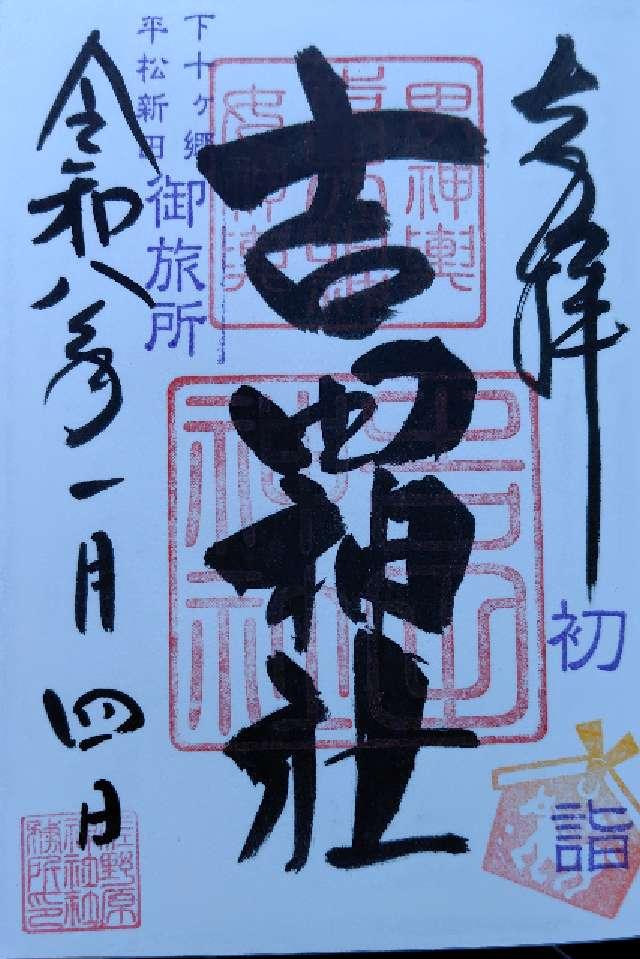 奉拝
初詣
吉田神社
下十ヶ郷
平松新田
御旅所
令和八年一月四日
佐野原
神社社
務所印